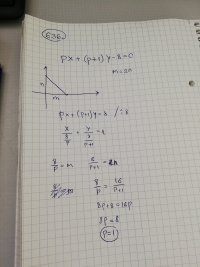 636.
px + (p+1)y - 8 = 0
m = 2n
n
m
px + (p+1)y = 8 /:8
x/(8/p) + y/(8/(p+1)) = 1
8/p = m    8/(p+1) = n
8/p = 16/(p+1)
8p + 8 = 16p
8p = 8
p = 1